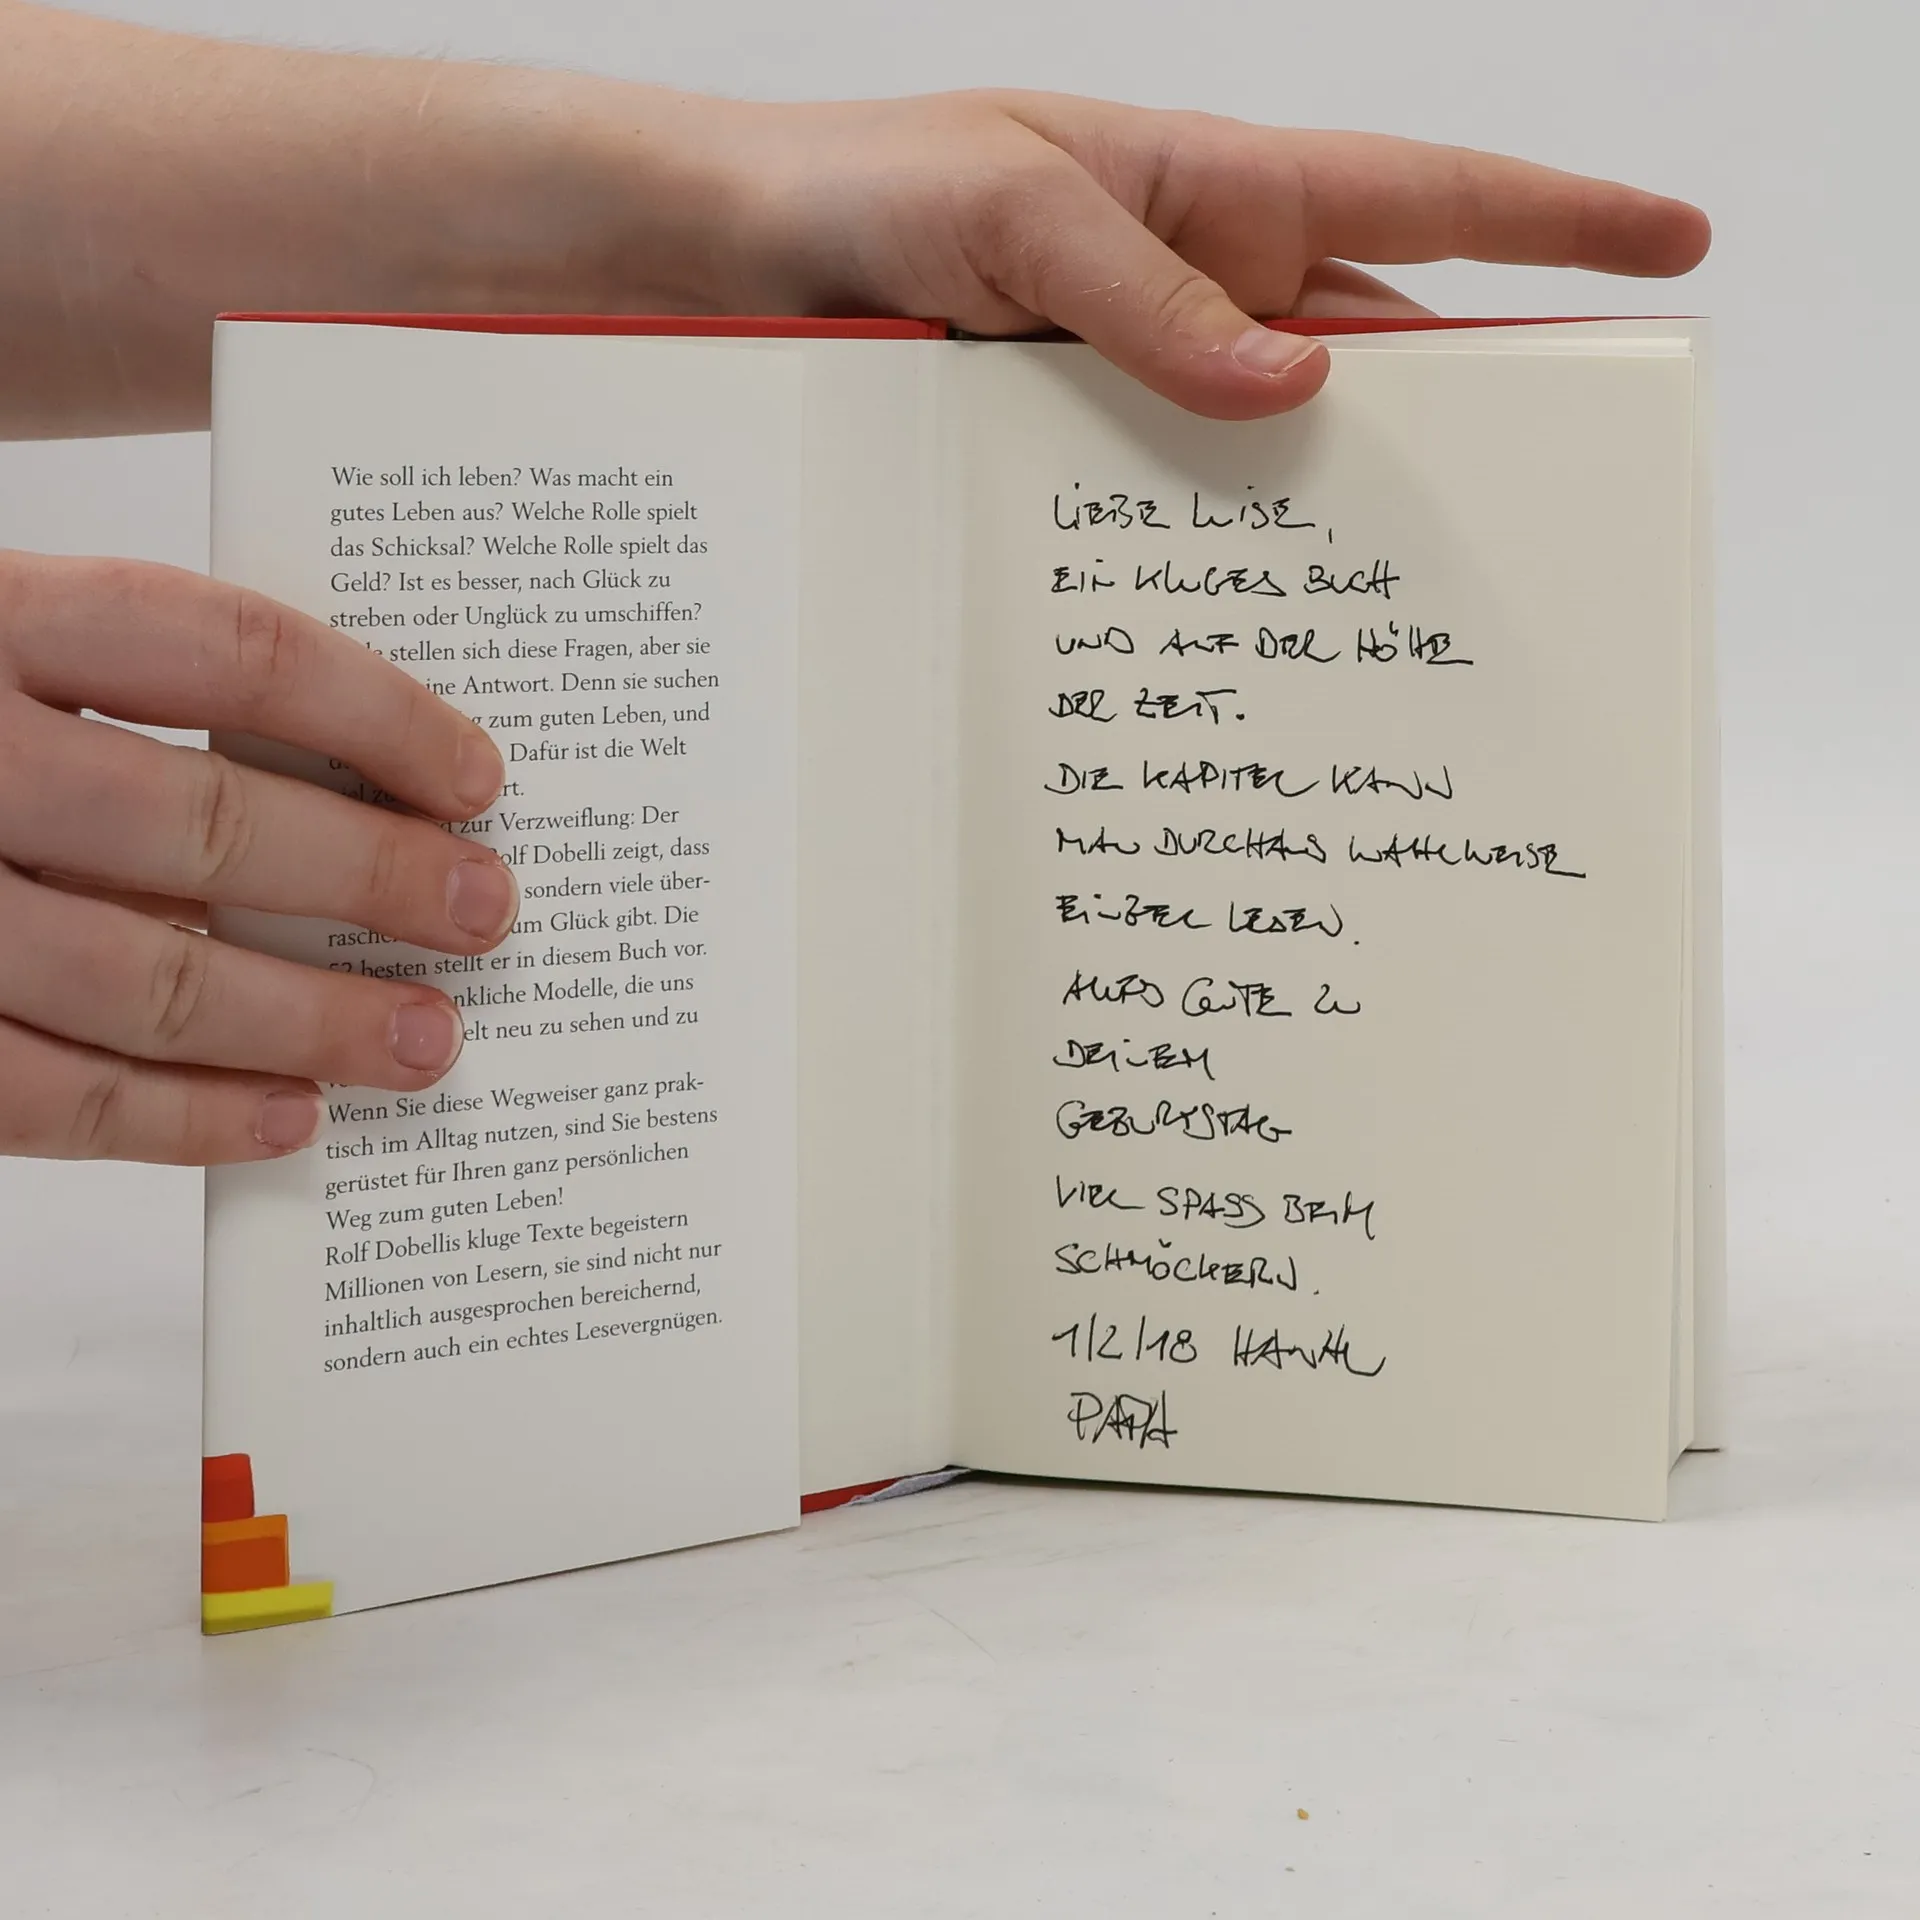 Wie soll ich leben? Was macht ein
gutes Leben aus? Welche Rolle spielt
das Schicksal? Welche Rolle spielt das
Geld? Ist es besser, nach Glück zu
streben oder Unglück zu umschiffen?
stellen sich diese Fragen, aber sie
Antwort. Denn sie suchen
zum guten Leben, und
Dafür ist die Welt
zur Verzweiflung: Der
Dobelli zeigt, dass
sondern viele über-
Glück gibt. Die
besten stellt er in diesem Buch vor.
Modelle, die uns
neu zu sehen und zu
Wenn Sie diese Wegweiser ganz prak-
tisch im Alltag nutzen, sind Sie bestens
gerüstet für Ihren ganz persönlichen
Weg zum guten Leben!
Rolf Dobellis kluge Texte begeistern
Millionen von Lesern, sie sind nicht nur
inhaltlich ausgesprochen bereichernd,
sondern auch ein echtes Lesevergnügen.
LIEBE LUISE,
EIN KLUGES BUCH
UND AUF DER HÖHE
DER ZEIT.
DIE KAPITEL KANN
MAN DURCHAUS WAHLWEISE
EINZEL LESEN.
ALLES GUTE ZU
DEINEM
GEBURTSTAG
VIEL SPASS BEIM
SCHMÖCKERN.
1/2/18
PAPA